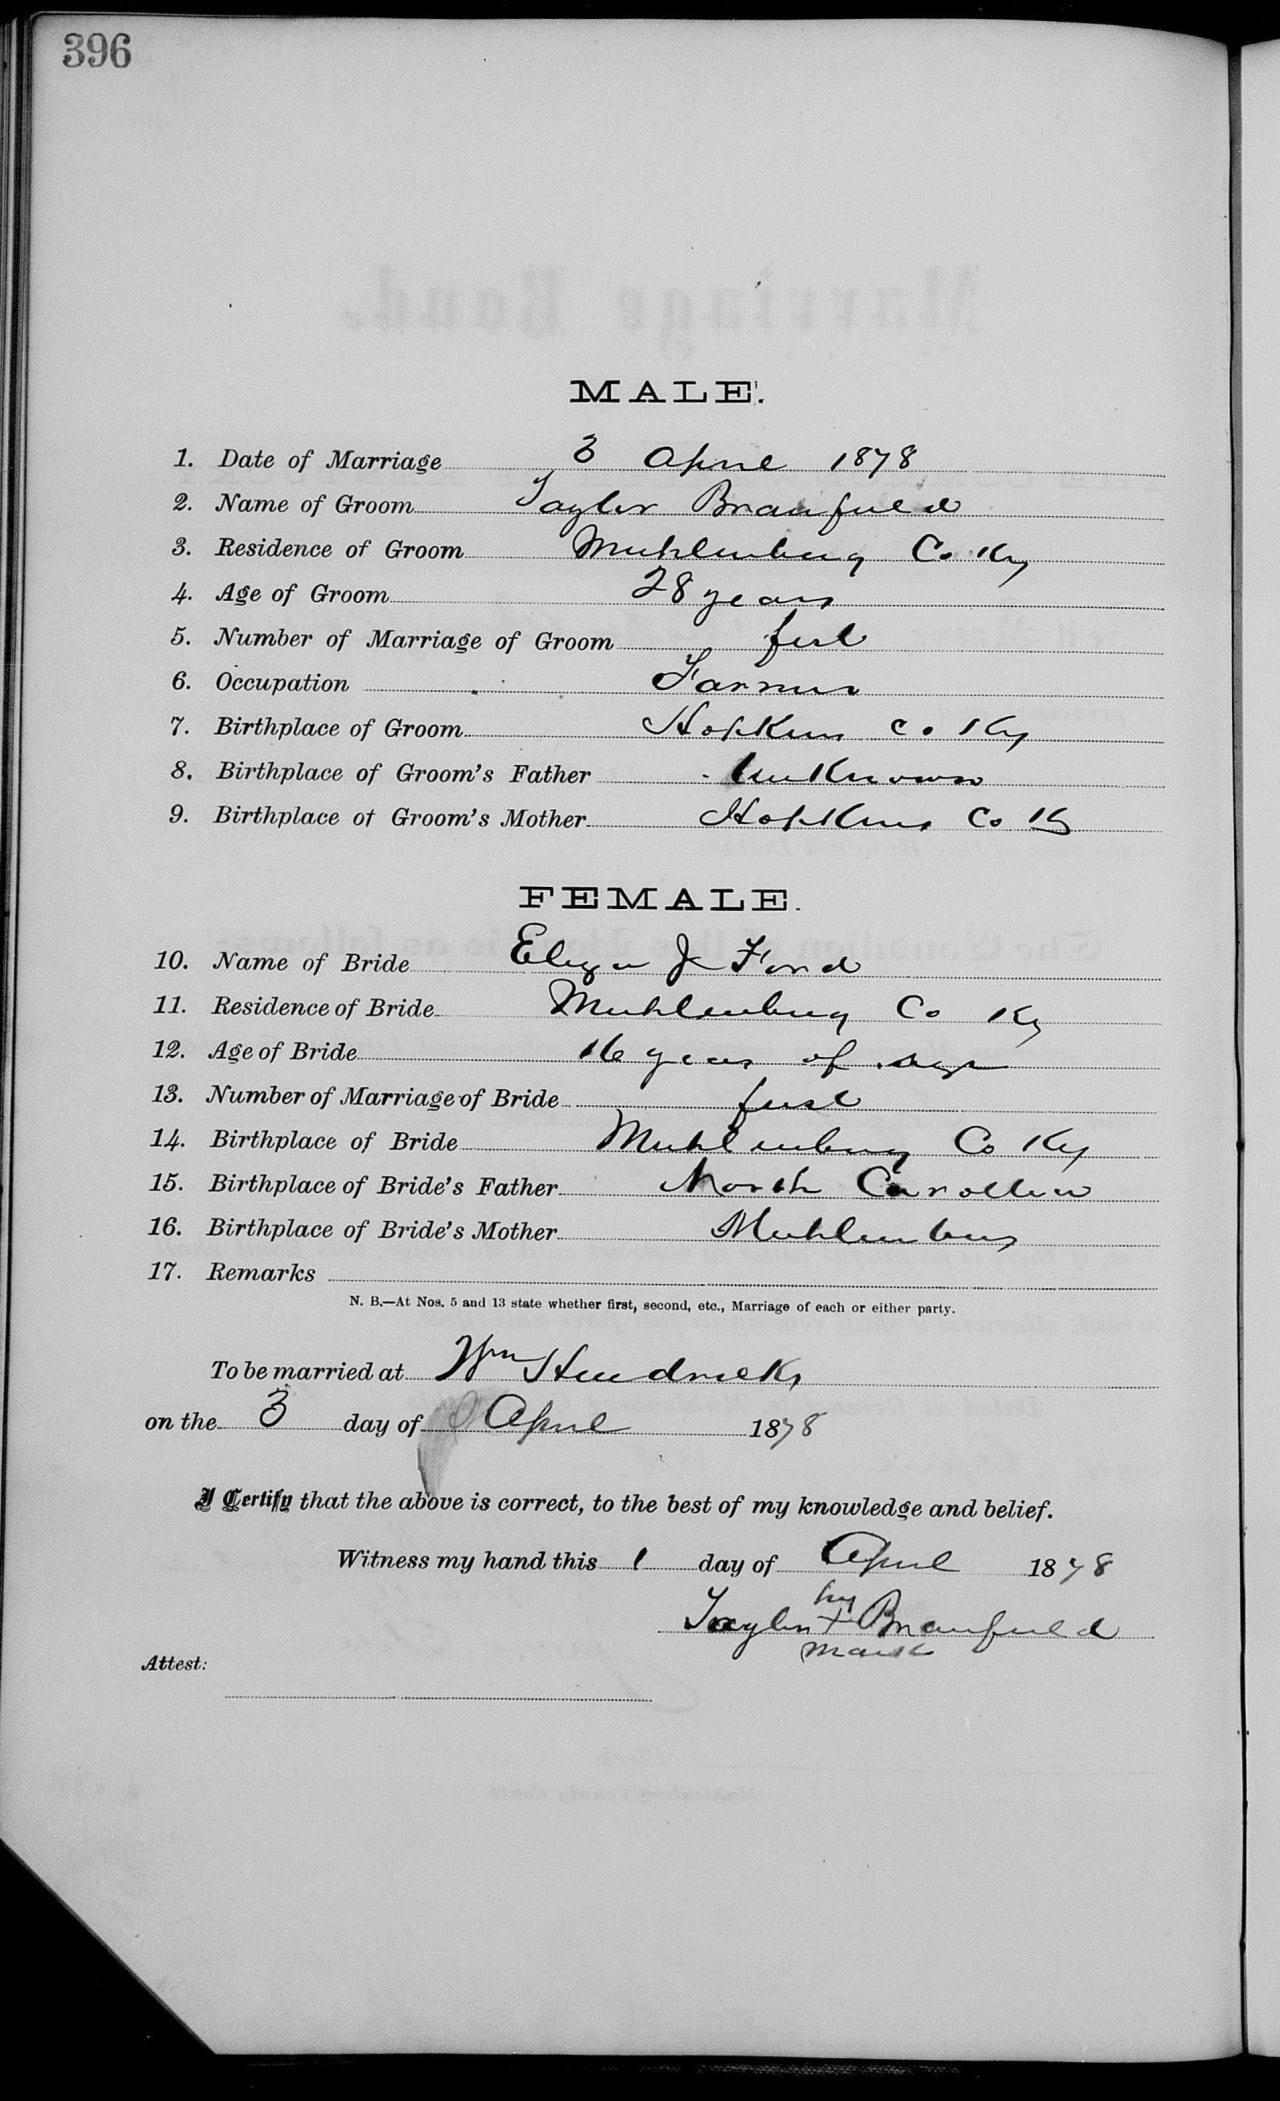 396
MALE.
1. Date of Marriage 3 April 1878
2. Name of Groom Taylor Branfield
3. Residence of Groom Muhlenburg Co Ky
4. Age of Groom 28 years
5. Number of Marriage of Groom first
6. Occupation Farmer
7. Birthplace of Groom Hopkins Co Ky
8. Birthplace of Groom's Father Unknown
9. Birthplace of Groom's Mother Hopkins Co Ky
FEMALE.
10. Name of Bride Eliza J Ford
11. Residence of Bride Muhlenburg Co Ky
12. Age of Bride 16 years of age
13. Number of Marriage of Bride first
14. Birthplace of Bride Muhlenburg Co Ky
15. Birthplace of Bride's Father North Carolina
16. Birthplace of Bride's Mother Muhlenburg
17. Remarks
N. B.—At Nos. 5 and 13 state whether first, second, etc., Marriage of each or either party.
To be married at Wm Hendricks
on the 3 day of April 1878
I Certify that the above is correct, to the best of my knowledge and belief.
Witness my hand this 1 day of April 1878
his
Taylor + Branfield
mark
Attest: